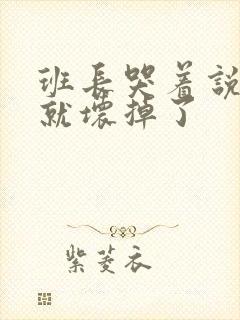 班長哭着説
就壞掉了
紫菱衣